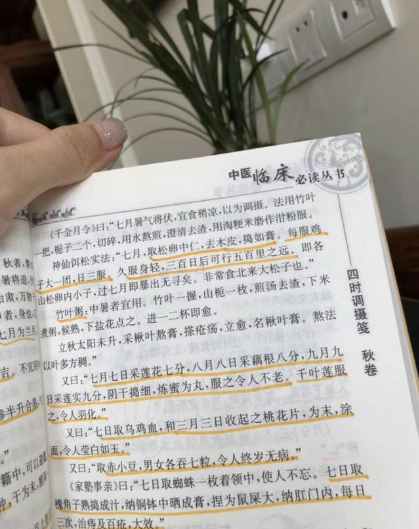 中医临床必读丛书
四时调摄笺 秋卷
《千金月令》曰：“七月暑气将伏，宜食稍凉，以为调摄。法用竹叶
一把，栀子二个，切碎，用水熬煎，澄清去渣，用淘粳米磨作泔粉服。
神仙饵松实法：“七月，取松卵中仁，去木皮，捣如膏。每服鸡
子大一团，日三服。久服身轻，三百日后可行五百里之远。即各
山松卵内小子，过七月即暴出无寻矣。非常食北来大松子也。”
竹叶粥，中暑者宜用。竹叶一握，山栀一枚，煎汤去渣，下米
煮粥，候熟，下盐花点之。进一二杯即愈。
立秋太阳未升，采楸叶熬膏，搽疮疡，立愈，名楸叶膏。熬法
以叶多方稠。”
又曰：“七月七日采莲花七分，八月八日采藕根八分，九月九
日采莲实九分，阴干捣细，炼蜜为丸，服之令人不老。千叶莲服
之，令人羽化。”
又曰：“七日取乌鸡血，和三月三日收起之桃花片，为末，涂
面，令人莹白如玉。”
又曰：“取赤小豆，男女各吞七粒，令人终岁无病。”
《家塾事亲》曰：“七日取蜘蛛一枚着领中，使人不忘。七日取
槐角子熟捣成汁，纳铜钵中晒成膏，捏为鼠屎大，纳肛门内，每日
三次，治痔及百疮，大效。”